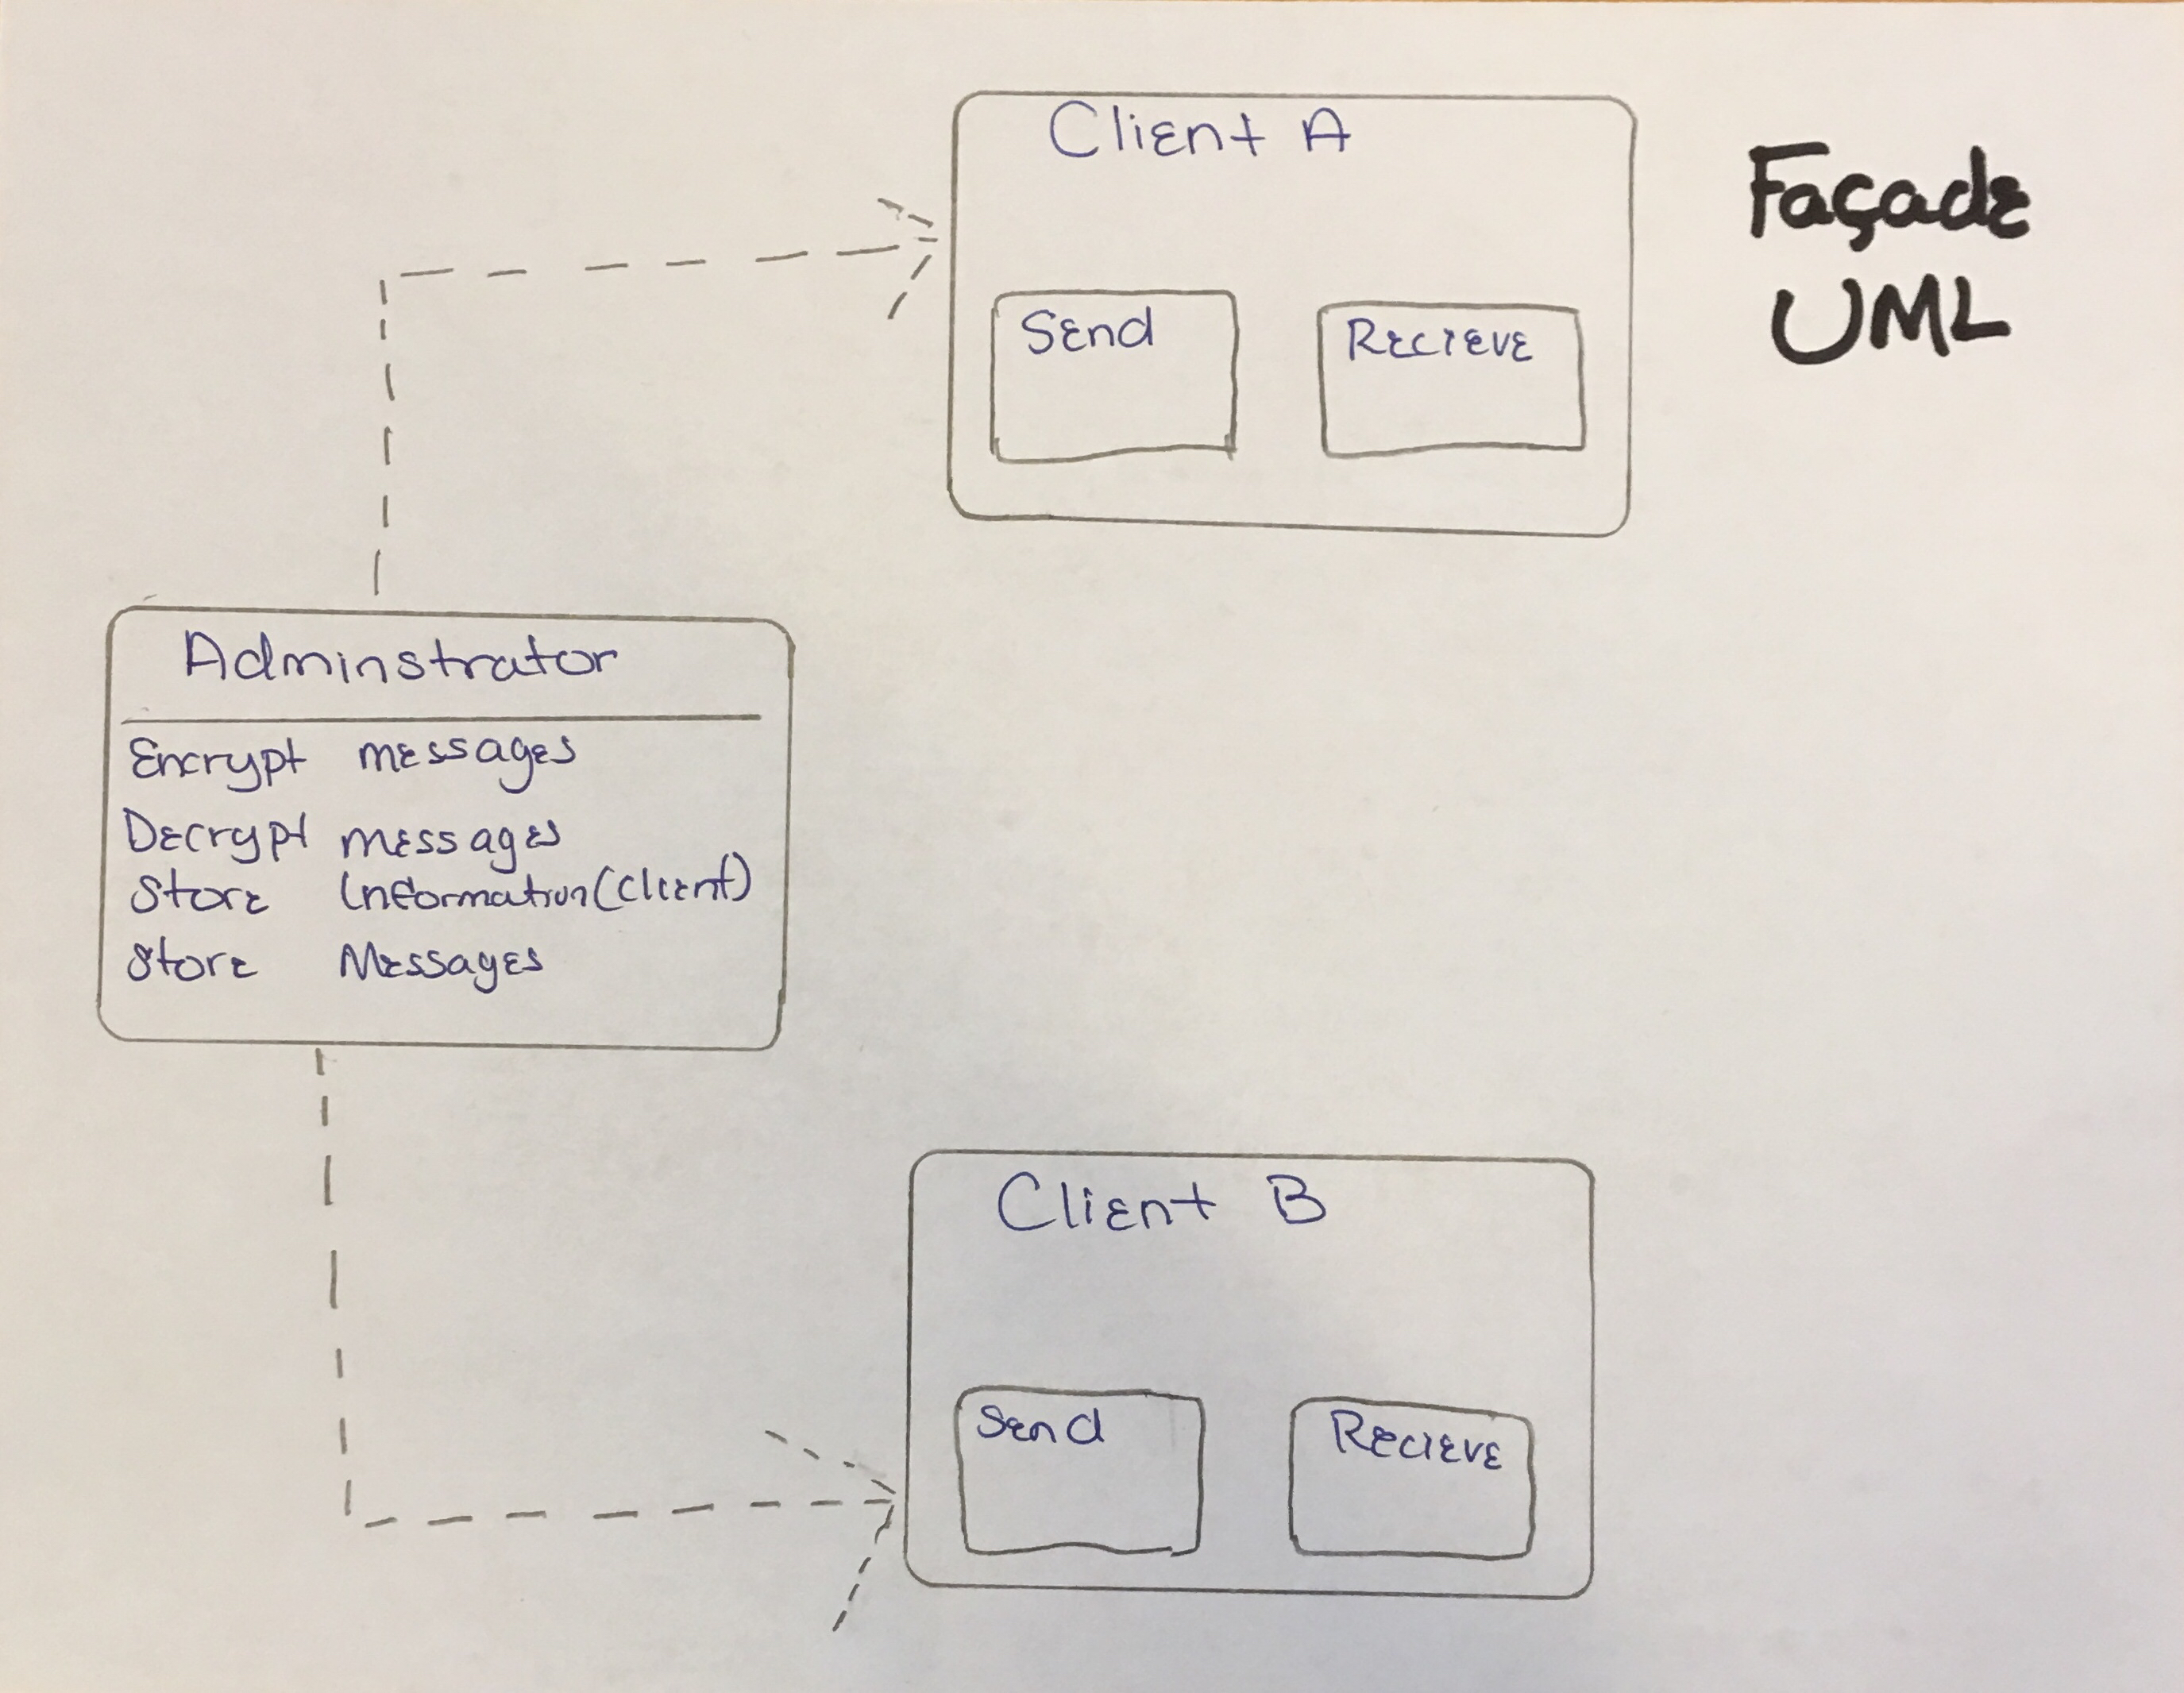 Client A
Façade
UML
Send
Recieve
Adminstrator
Encrypt messages
Decrypt messages
Store Information(client)
Store Messages
Client B
Send
Recieve